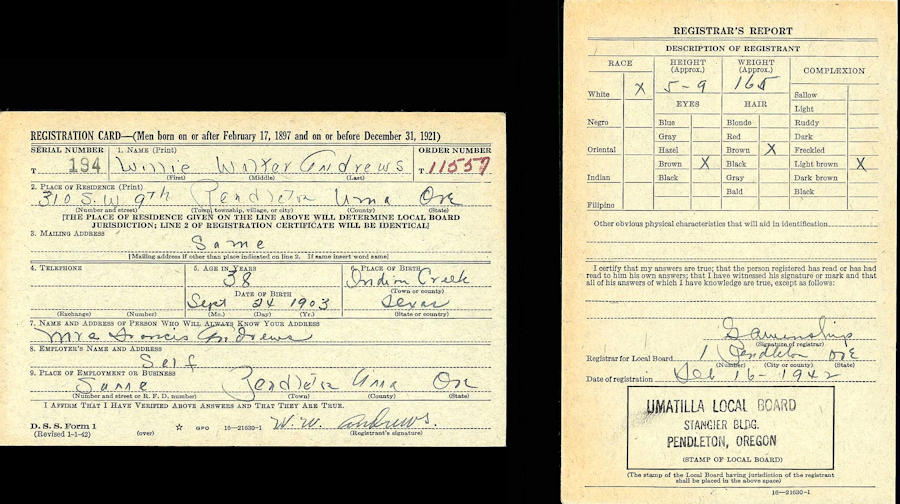 REGISTRATION CARD—(Men born on or after February 17, 1897 and on or before December 31, 1921)
SERIAL NUMBER 1. NAME (Print) ORDER NUMBER
T 194 Willie Walter Andrews T 11557
(First) (Middle) (Last)
2. PLACE OF RESIDENCE (Print)
310 S.W. 9th Pendleton Uma Ore
(Number and street) (Town, township, village, or city) (County) (State)
[THE PLACE OF RESIDENCE GIVEN ON THE LINE ABOVE WILL DETERMINE LOCAL BOARD
JURISDICTION; LINE 2 OF REGISTRATION CERTIFICATE WILL BE IDENTICAL]
3. MAILING ADDRESS
Same
[Mailing address if other than place indicated on line 2. If same insert word same]
4. TELEPHONE 5. AGE IN YEARS 6. PLACE OF BIRTH
38 Indian Creek
DATE OF BIRTH (Town or county)
Sept 24 1903 Texas
(Exchange) (Number) (Mo.) (Day) (Yr.) (State or country)
7. NAME AND ADDRESS OF PERSON WHO WILL ALWAYS KNOW YOUR ADDRESS
Mrs Francis Andrews
8. EMPLOYER'S NAME AND ADDRESS
Self
9. PLACE OF EMPLOYMENT OR BUSINESS
Same Pendleton Uma Ore
(Number and street or R. F. D. number) (Town) (County) (State)
I AFFIRM THAT I HAVE VERIFIED ABOVE ANSWERS AND THAT THEY ARE TRUE.
D. S. S. Form 1
(Revised 1-1-42) (over) ☆ GPO 16—21630-1 W. W. Andrews.
(Registrant's signature)
REGISTRAR'S REPORT
DESCRIPTION OF REGISTRANT
RACE HEIGHT (Approx.) WEIGHT (Approx.) COMPLEXION
White X 5-9 165 Sallow
EYES HAIR Light
Negro Blue Blonde Ruddy
Gray Red Dark
Oriental Hazel Brown X Freckled
Brown X Black Light brown X
Indian Black Gray Dark brown
Bald Black
Filipino
Other obvious physical characteristics that will aid in identification
I certify that my answers are true; that the person registered has read or has had
read to him his own answers; that I have witnessed his signature or mark and that
all of his answers of which I have knowledge are true, except as follows:
(Signature of registrar)
Registrar for Local Board 1 Pendleton Ore
(Number) (City or county) (State)
Date of registration Feb 16-1942
UMATILLA LOCAL BOARD
STANGIER BLDG.
PENDLETON, OREGON
(STAMP OF LOCAL BOARD)
(The stamp of the Local Board having jurisdiction of the registrant
shall be placed in the above space)
16—21630-1